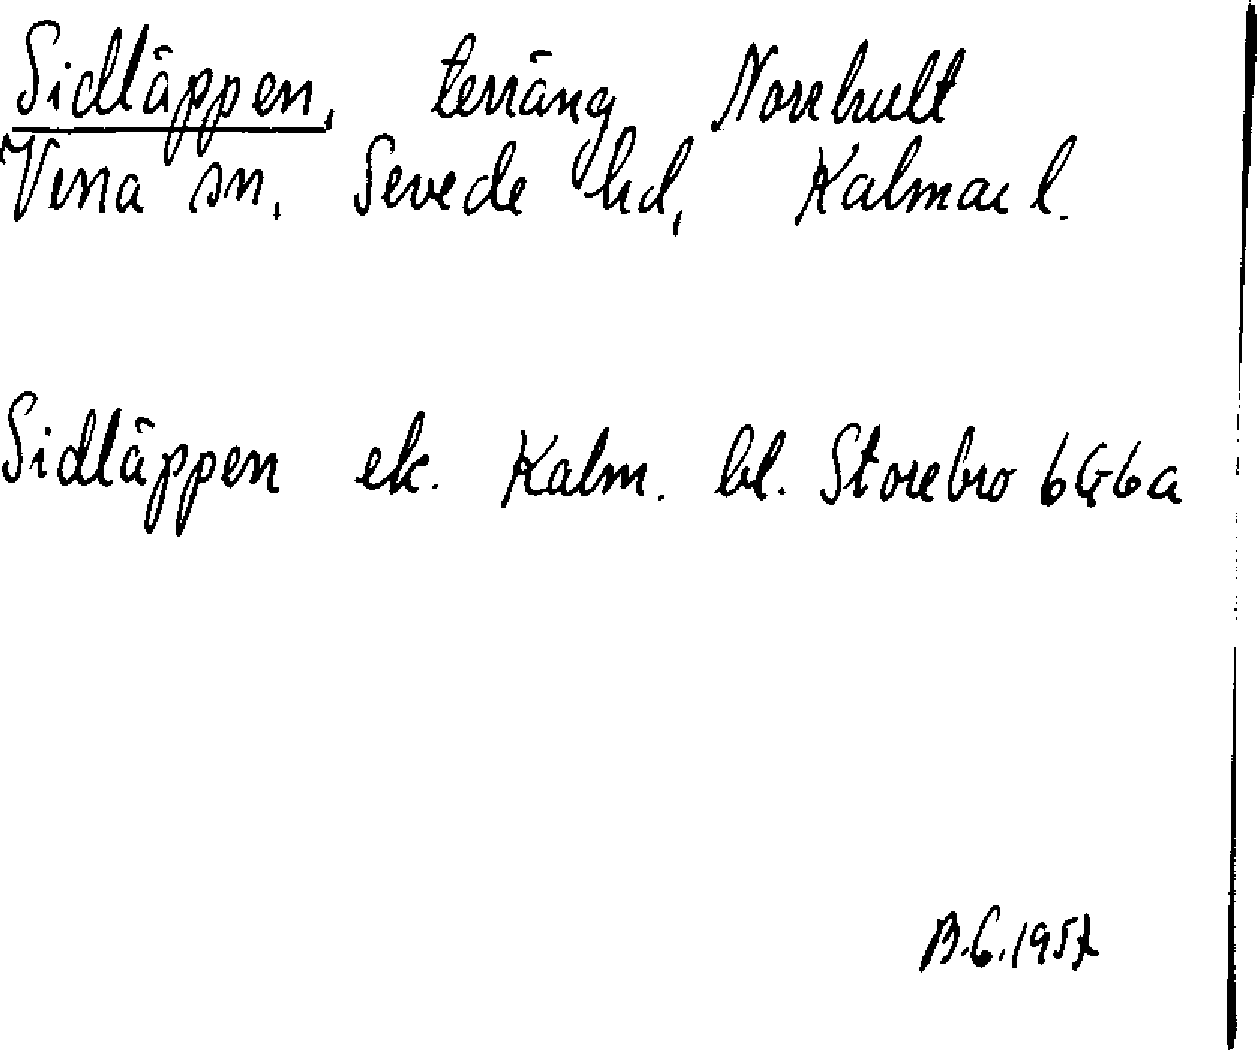 Sidläppen, terräng Norrhult
Vena sn, Sevede hd, Kalmar l.
Sidläppen ek. Kalm. bl. Storebro 6G6a
B.G. 1957